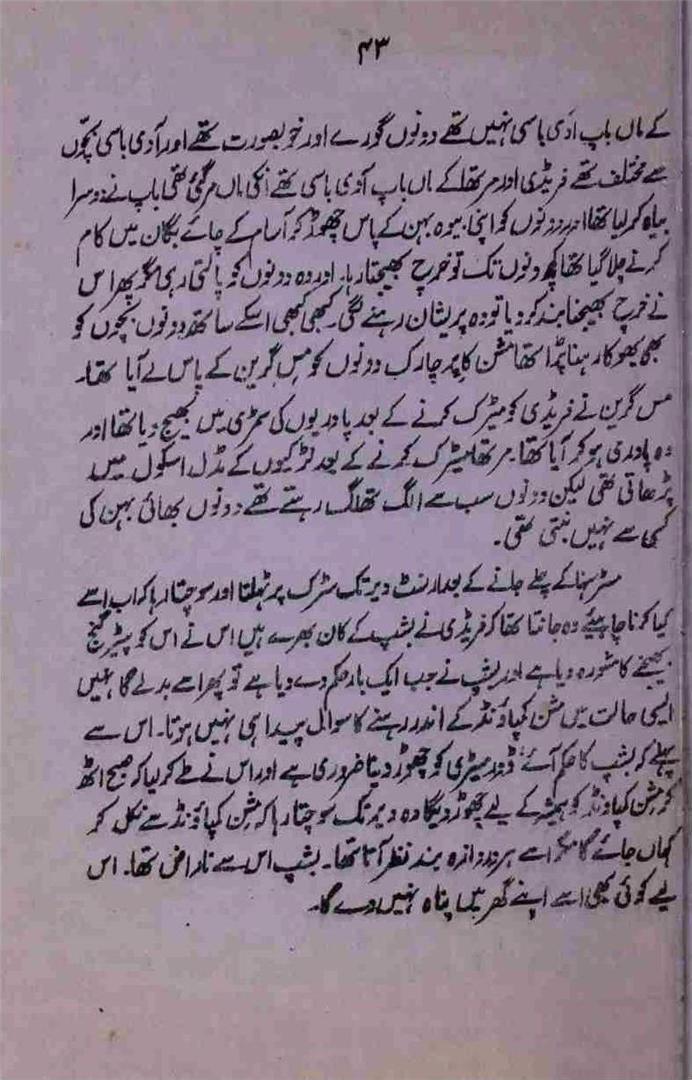 ۴۳
کے ماں باپ آدی باسی نہیں تھے دونوں گورے اور خوبصورت تھے اور آدی باسی بچّوں
سے مختلف تھے فریڈی اور مرتھا کے ماں باپ آدی باسی تھے انکی ماں مر گئی تھی باپ نے دوسرا
بیاہ کر لیا تھا اور دونوں کو اپنی بیوہ بہن کے پاس چھوڑ کر آسام کے چائے بگان میں کام
کرنے چلا گیا تھا کچھ دنوں تک تو خرچ بھیجتا رہا۔ اور وہ دونوں کو پالتی رہی مگر پھر اس
نے خرچ بھیجنا بند کر دیا تو وہ پریشان رہنے لگی۔ کبھی کبھی اسکے ساتھ دونوں بچوں کو
بھی بھوکا رہنا پڑا تھا مشن کا پرچارک دونوں کو مس گرین کے پاس لے آیا تھا۔
مس گرین نے فریڈی کو میٹرک کرنے کے بعد پادریوں کی سمڑی میں بھیج دیا تھا اور
وہ پادری ہو کر آیا تھا۔ مرتھا میٹرک کرنے کے بعد لڑکیوں کے مڈل اسکول میں
پڑھاتی تھی لیکن دونوں سب سے الگ تھلگ رہتے تھے دونوں بھائی بہن کی
کسی سے نہیں بنتی تھی۔
مسٹر سہنا کے چلے جانے کے بعد ارنسٹ دیر تک سڑک پر ٹہلتا اور سوچتا رہا کہ اب اسے
کیا کرنا چاہیئے وہ جانتا تھا کہ فریڈی نے بشپ کے کان بھرے ہیں اس نے اس کو پیٹر گنج
بھیجنے کا مشورہ دیا ہے اور بشپ نے جب ایک بار حکم دے دیا ہے تو پھر اسے بدلے گا نہیں
ایسی حالت میں مشن کمپاؤنڈ کے اندر رہنے کا سوال پیدا ہی نہیں ہوتا۔ اس سے
پہلے کہ بشپ کا حکم آئے، ڈورمیٹری کو چھوڑ دینا ضروری ہے اور اس نے طے کر لیا کہ صبح اٹھ
کر مشن کمپاؤنڈ کو ہمیشہ کے لیے چھوڑ دیگا وہ دیر تک سوچتا رہا کہ مشن کمپاؤنڈ سے نکل کر
کہاں جائے گا مگر اسے ہر دروازہ بند نظر آتا تھا۔ بشپ اس سے ناراض تھا۔ اس
لیے کوئی بھی اسے اپنے گھر میں پناہ نہیں دے گا۔